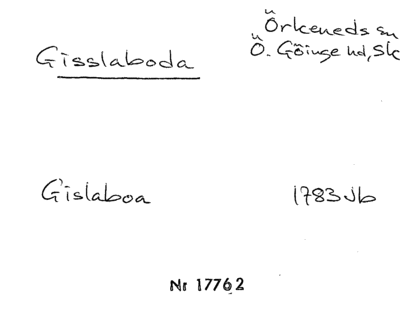 Örkeneds sn
Gisslaboda
Ö. Göinge hd, Sk
Gislaboa 1783 Jb
Nr 17762